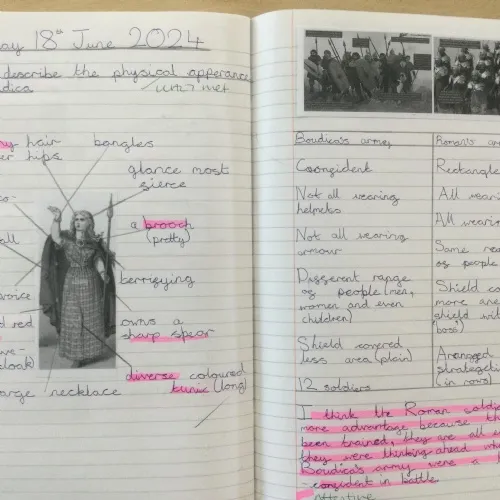 ay 18th June 2024
describe the physical apperance
dica
until met
ry hair
er hips
bangles
glance most
fierce
a brooch
(pretty)
all
voice
terrifying
d red
owns a
sharp spear
cloak)
diverse coloured
tunic (long)
arge necklace
Boudica's army
Confident
Not all wearing
helmets
Not all wearing
armour
Different range
of people (men,
women and even
children)
Shield covered
less area (plain)
12 soldiers
Roman's ar
Rectangle
All wear
All wear
Same ra
of people
Shield co
more are
shield wit
boss)
Arranged
strategeti
(in rows)
I think the Roman soldie
more advantage because th
been trained, they are all e
they were thinking ahead wh
Boudica's army were a
-confident in battle